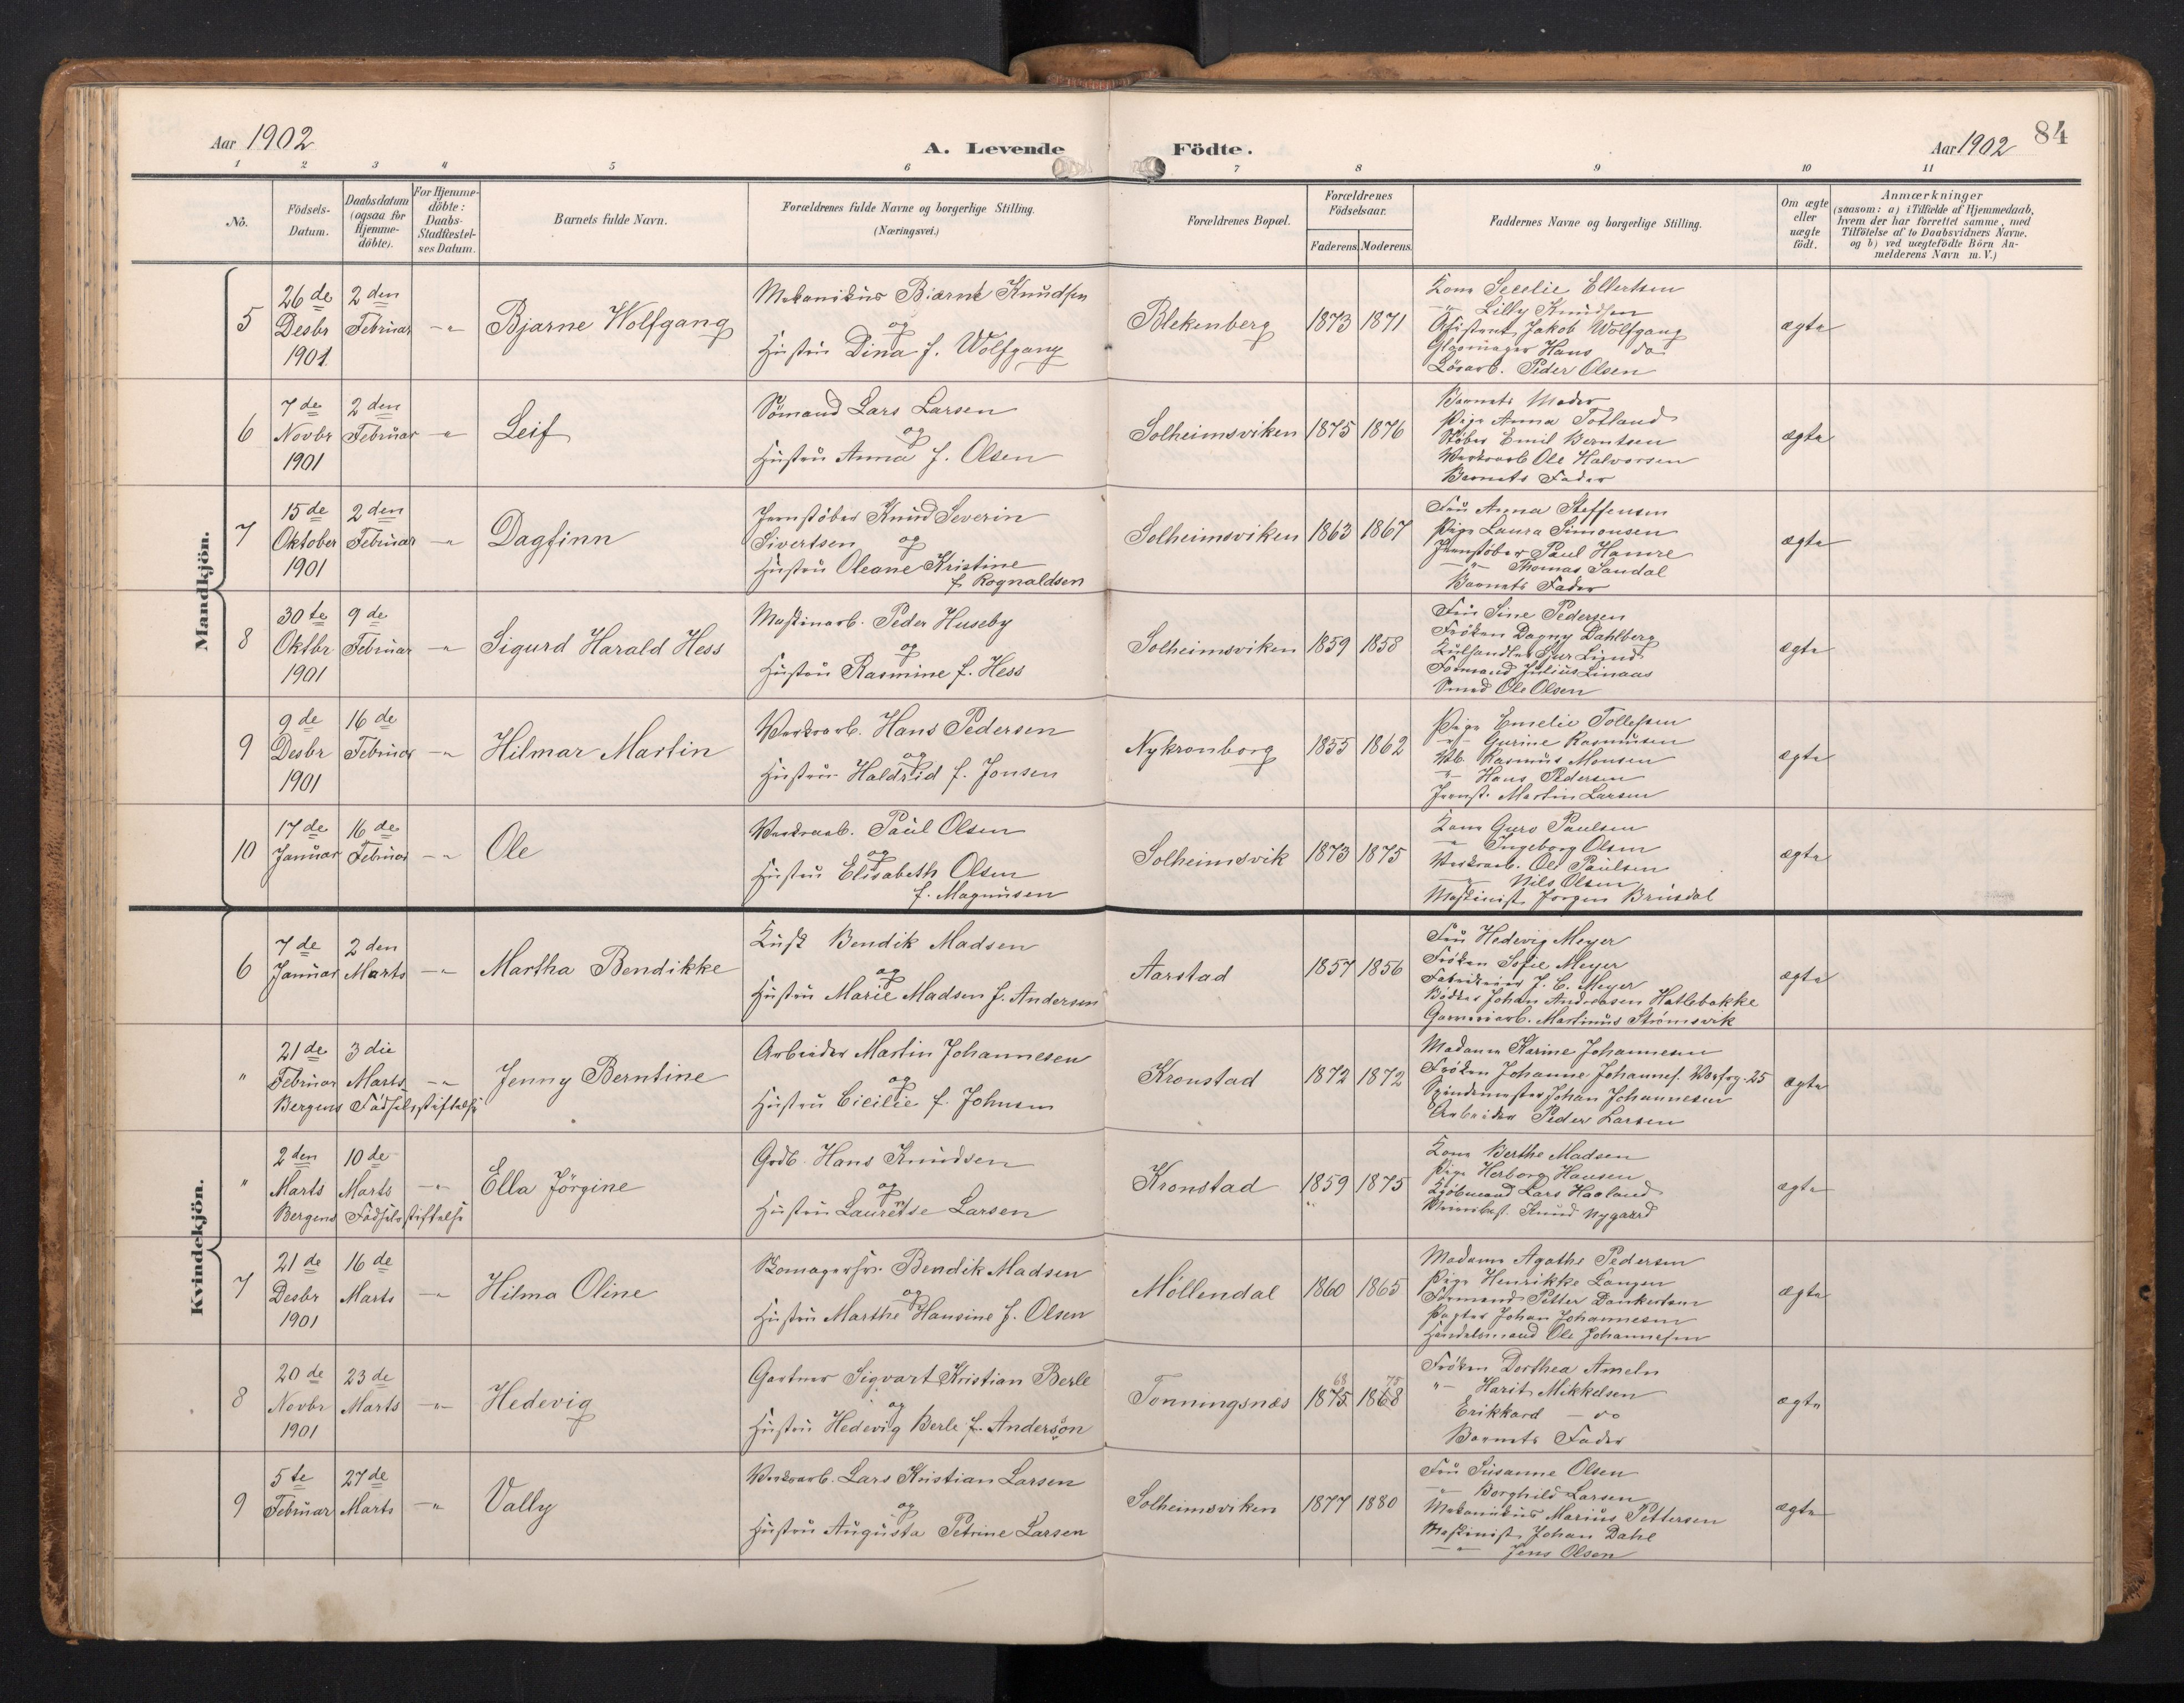 Aar 1902
A. Levende Födte.
Aar 1902
84
1 2 3 4 5 6 7 8 9 10 11
No.
Födsels-Datum.
Daabsdatum (ogsaa for Hjemme-döbte).
For Hjemme-döbte: Daabs-Stadfæstelses Datum.
Barnets fulde Navn.
Forældrenes fulde Navne og borgerlige Stilling.
(Næringsvei.)
Forældrenes Bopæl.
Forældrenes Födselsaar.
Faderens. Moderens.
Faddernes Navne og borgerlige Stilling.
Om ægte eller uægte födt.
Anmærkninger
(saasom: a) i Tilfælde af Hjemmedaab,
hvem der har forrettet samme, med
Tilföielse af to Daabsvidners Navne.
og b) ved uægtefödte Börn An-
melderens Navn m. V.)
Mandkjön.
5
26de Desbr 1901
2den Februar
-"-
Bjarne Wolfgang
Mekanikus Bjarne Knudsen
og
Hustru Dina f. Wolfgang
Blekenberg
1873 1871
Kone Secelie Ellertsen
-"- Lilly Knudsen
Assistent Jakob Wolfgang
Hans do
Lösarb. Peder Olsen
ægte
6
7de Novbr 1901
2den Februar
-"-
Leif
Sömand Lars Larsen
og
Hustru Anna f. Olsen
Solheimsviken
1875 1876
Barnets Moder
Pige Anna Totland
Stöber Emil Berntsen
Værksarb Ole Halvorsen
Barnets Fader
ægte
7
15de Oktober 1901
2den Februar
-"-
Dagfinn
Jernstöber Knud Severin
Sivertsen og
Hustru Oleane Kristine
f. Rognaldsen
Solheimsviken
1863 1867
Fru Anna Steffensen
Pige Laura Simonsen
Jernstöber Paul Hamre
-"- Thomas Sandal
Barnets Fader
ægte
8
30te Oktbr 1901
9de Februar
-"-
Sigurd Harald Hess
Maskinarb. Peder Huseby
og
Hustru Rasmine f. Hess
Solheimsviken
1859 1858
Fru Sine Pedersen
Fröken Dagny Dahlberg
Kulhandler Sjur Lund
Formand Julius Linaas
Smed Ole Olsen
ægte
9
9de Desbr 1901
16de Februar
-"-
Hilmar Martin
Værksarb. Hans Pedersen
og
Hustru Haldrid f. Jonsen
Nykronborg
1855 1862
Pige Emelie Tollefsen
-"- Gurine Rasmusen
Vb. Rasmus Monsen
-"- Hans Pedersen
Jernst. Martin Larsen
ægte
10
17de Januar
16de Februar
-"-
Ole
Værksarb. Paul Olsen
og
Hustru Elisabeth Olsen
f. Magnusen
Solheimsvik
1873 1875
Kone Guro Paulsen
-"- Ingeborg Olsen
Værksarb. Ole Paulsen
-"- Nils Olsen
Maskinist Jorgen Brusdal
ægte
Kvindekjön.
6
7de Januar
2den Marts
-"-
Martha Bendikke
Kusk Bendik Madsen
og
Hustru Marie Madsen f. Andersen
Aarstad
1857 1856
Fru Hedevig Meyer
Fröken Sofie Meyer
J. C. Meyer
Bödker Johan Andreasen Hatlebakke
Garveriarb. Martinus Strömsvik
ægte
"
21de Februar
3die Marts
-"-
Bergens Födselsstiftelse
Jenny Berntine
Arbeider Martin Johannesen
og
Hustru Cicilie f. Johnsen
Kronstad
1872 1872
Madame Karine Johannesen
Fröken Johanne Johannes. 25
Spindemester Johan Johannesen
Arbeider Peder Larsen
ægte
"
2den Marts
10de Marts
-"-
Bergens Födselsstiftelse
Ella Jörgine
Grdb. Hans Knudsen
og
Hustru Lauretse Larsen
Kronstad
1859 1875
Kone Berthe Madsen
Pige Herborg Hansen
Kjöbmand Lars Haaland
Knud Nygaard
ægte
7
21de Desbr 1901
16de Marts
-"-
Hilma Oline
Skomagersv. Bendik Madsen
og
Hustru Marthe Hansine f. Olsen
Möllendal
1860 1865
Madame Agathe Pedersen
Pige Henrikke Langen
Formand Petter Dankertsen
Pagter Johan Johannesen
Handelsmand Ole Johannesen
ægte
8
20de Novbr 1901
23de Marts
-"-
Hedevig
Gartner Sigvart Kristian Berle
og
Hustru Hedevig Berle f. Anderson
Tonningsnæs
68 75
1875 1868
Fröken Dorthea Ameln
-"- Harit Mikkelsen
Erikkard - do
Barnets Fader
ægte
9
5te Februar
27de Marts
-"-
Vally
Værksarb. Lars Kristian Larsen
og
Hustru Augusta Petrine Larsen
Solheimsviken
1877 1880
Fru Susanne Olsen
-"- Borghild Larsen
Mekanikus Marius Pettersen
Maskinist Johan Dahl
-"- Jens Olsen
ægte